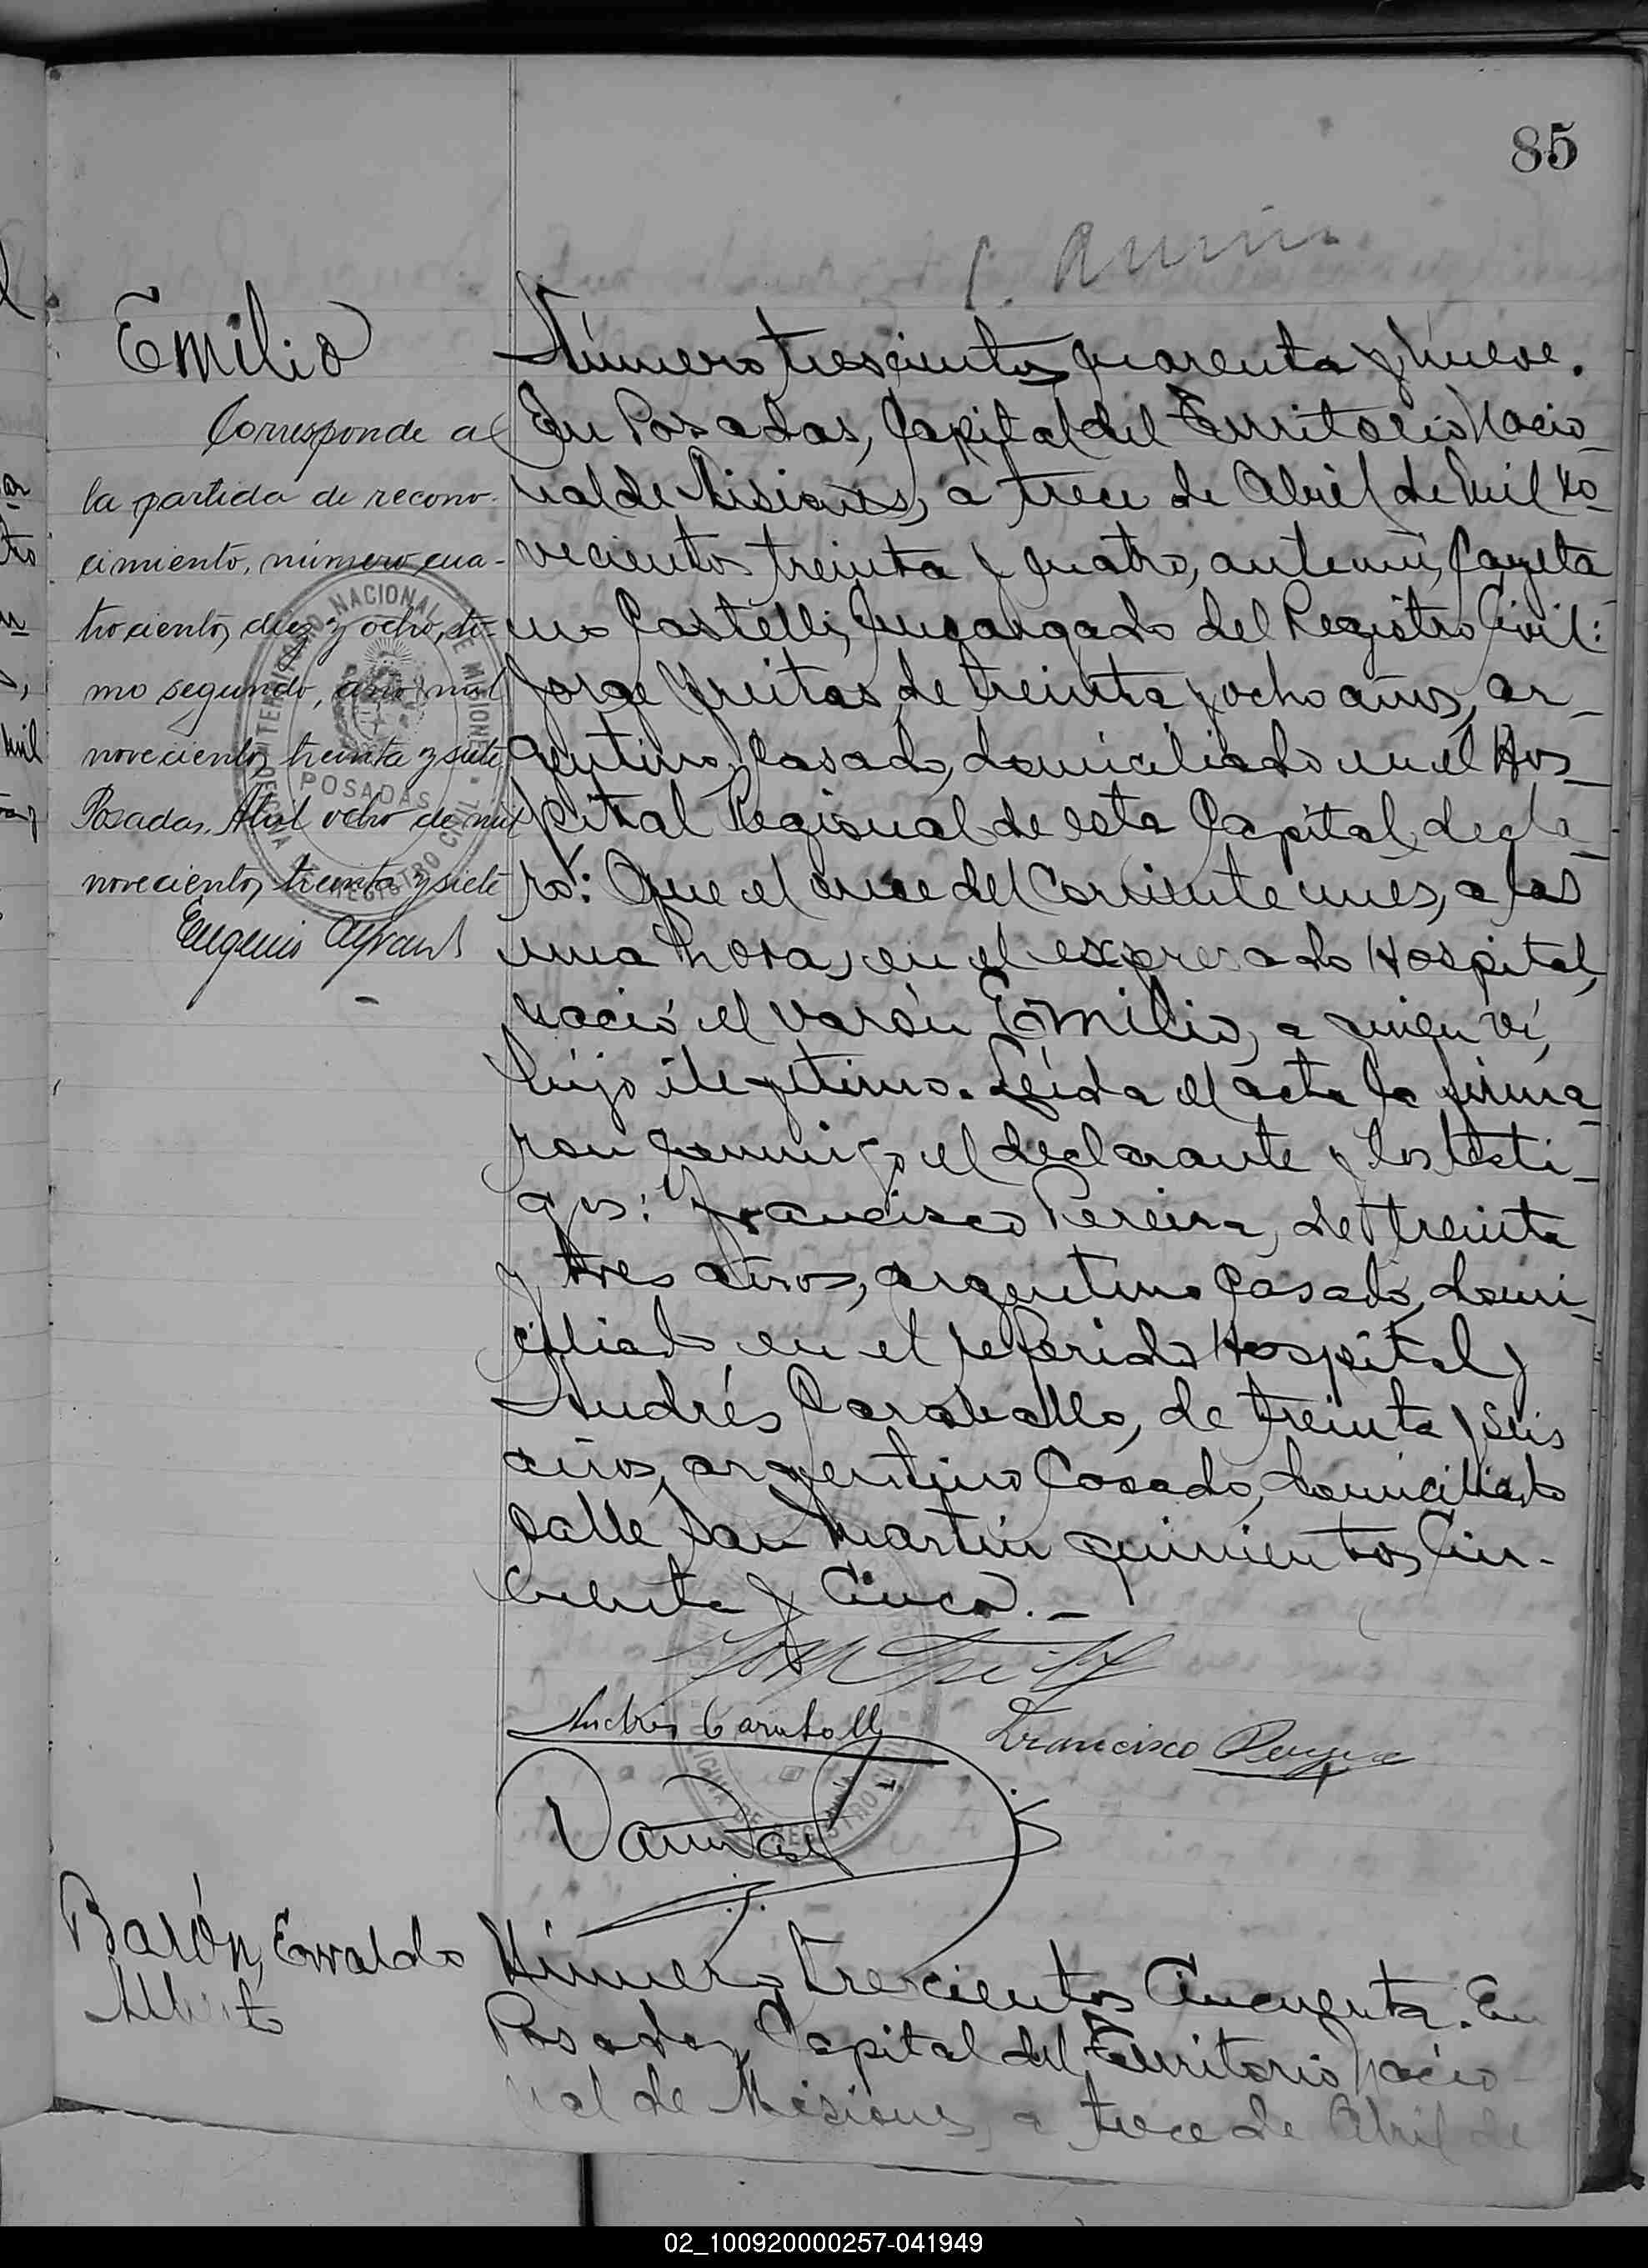 85
Emilio
Corresponde a
la partida de recono-
cimiento, número cua-
trocientos diez y ocho, to-
mo segundo, año mil
novecientos treinta y siete
Posadas, Abril ocho de mil
novecientos treinta y siete
Eugenio
TERRITORIO NACIONAL DE MISIONES
POSADAS
OFICINA DE REGISTRO CIVIL
Número trescientos quarenta y nueve.
En Posadas, Capital del Territorio Nacio-
nal de Misiones, a trece de Abril de mil no-
vecientos treinta y quatro, ante mí, Cayeta
no Castelli, Encargado del Registro Civil:
Jorge Freitas, de treinta y ocho años, ar-
gentino, casado, domiciliado en el Hos-
pital Regional de esta Capital, decla-
ró: Que el once del corriente mes, a las
una hora, en el expresado Hospital,
nació el varón Emilio, a quien ví,
hijo ilegitimo. Leída el acta la firma-
ron conmigo el declarante y los testi-
gos: Francisco Pereira, de treinta
y tres años, argentino, casado, domi-
ciliado en el referido Hospital y
Andrés Caraballo, de treinta y seis
años, argentino, casado, domiciliado
calle San Martin quinientos cin-
cuenta y cinco.-
Andrés Caraballo
Francisco Pereira
OFICINA DE REGISTRO CIVIL
Barón, Ewaldo
Alberto
Número trescientos cincuenta. En
Posadas, Capital del Territorio Nacio-
nal de Misiones, a trece de Abril de
02_100920000257-041949